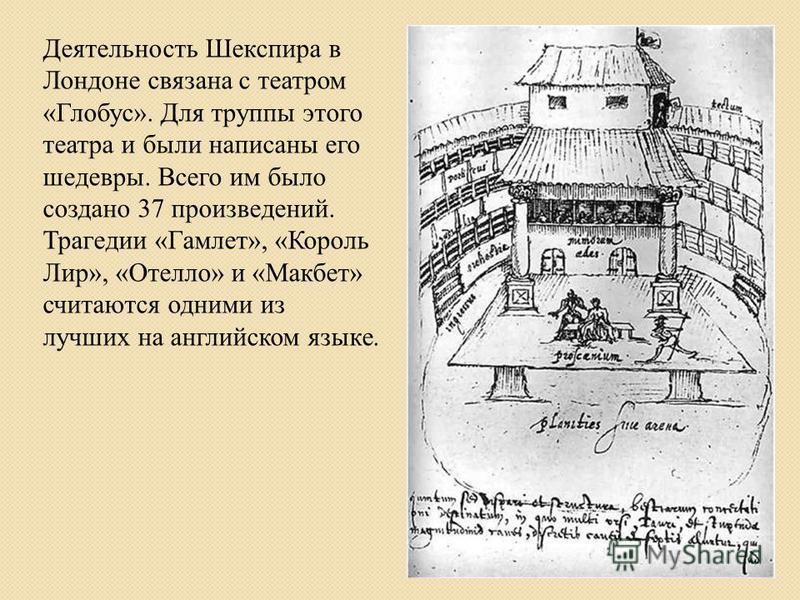 Деятельность Шекспира в
Лондоне связана с театром
«Глобус». Для труппы этого
театра и были написаны его
шедевры. Всего им было
создано 37 произведений.
Трагедии «Гамлет», «Король
Лир», «Отелло» и «Макбет»
считаются одними из
лучших на английском языке.
tectum
porticus
orchestra
ingressus
mimorum
ædes.
proscænium
planities sive arena.
MyShared